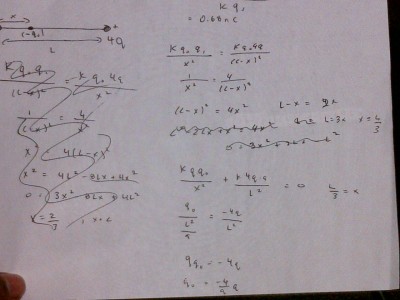 x
+
(-q₀)
L
4q
K q q₀ / (L-x)² = K q₀ 4q / x²
1 / (L-x)² = 4 / x²
x² 4(L-x)²
x² = 4L² - 8Lx + 4x²
0 = 3x² - 8L + 4L²
x = 2/3
K q₁
= 0.68 n C
K q₀ q₁ / x² = K q₀ 4q / (L-x)²
1 / x² = 4 / (L-x)²
(L-x)² = 4x² L-x = 2x
L=3x x = L/3
K q q₀ / x² + K 4q q / L² = 0 L/3 = x
q₀ / L²/9 = -4q / L²
9q₀ = -4q
q₀ = -4/9 q